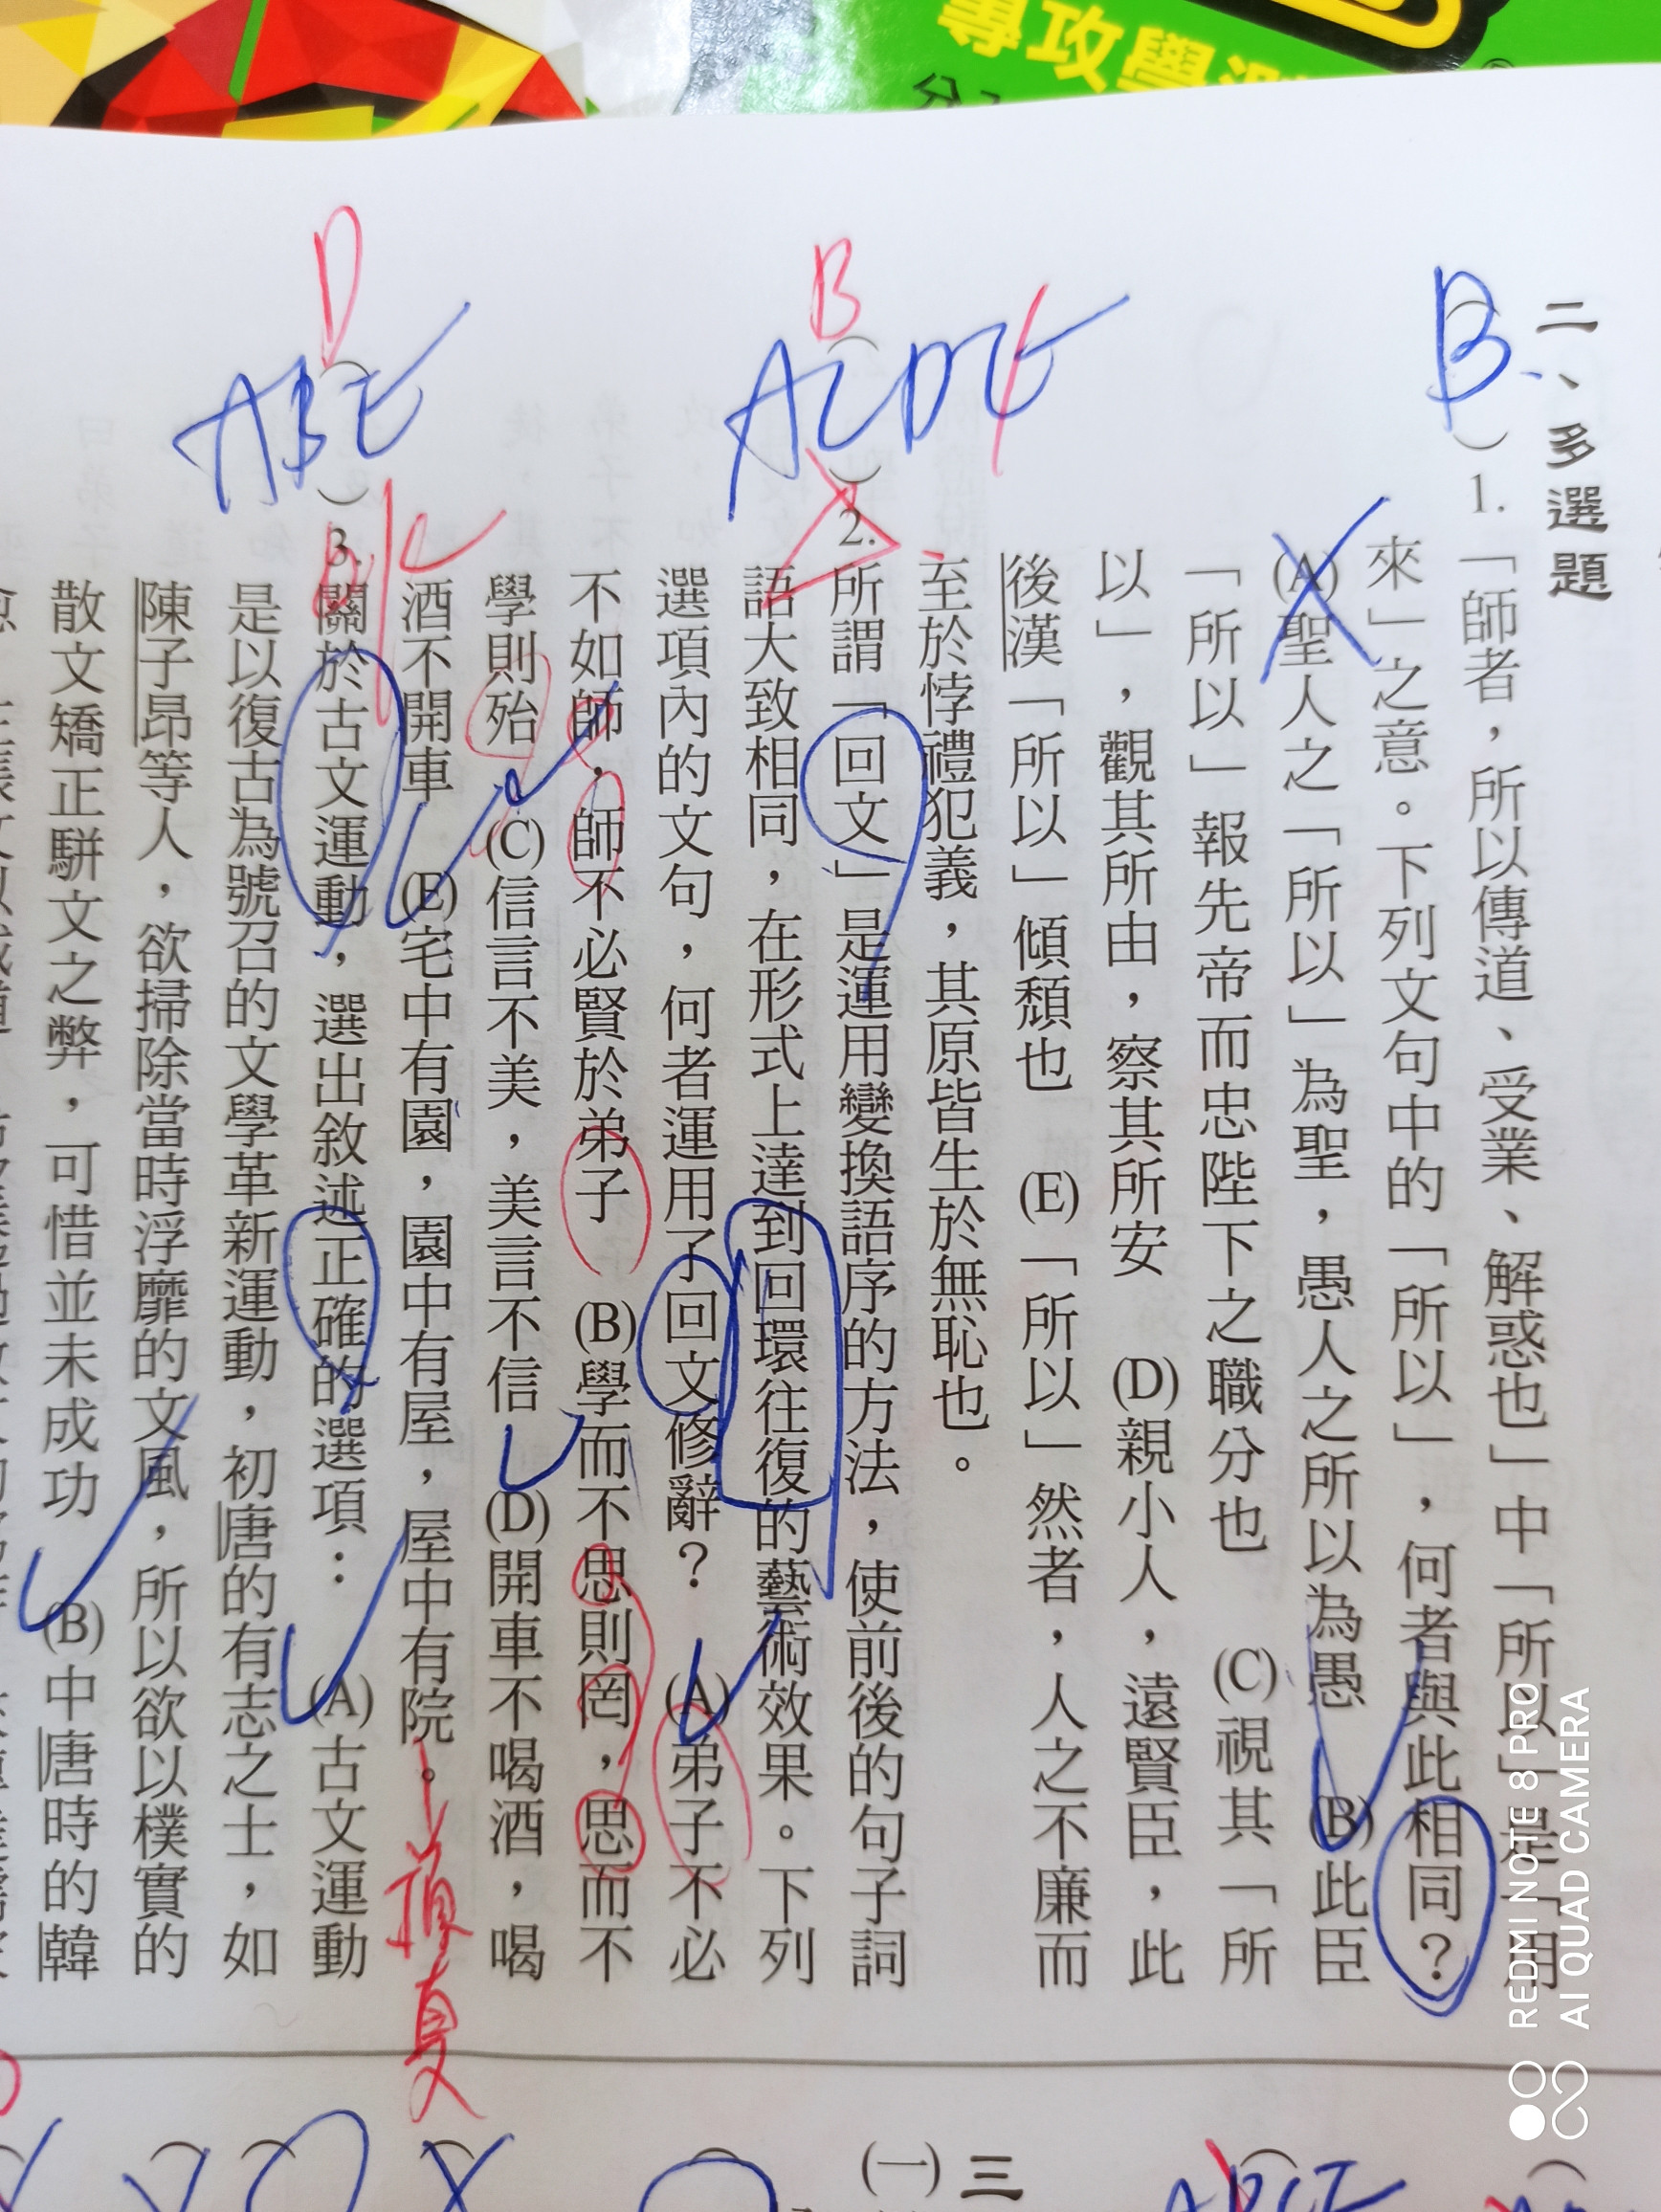 專攻學測
二、多選題
B
1.「師者，所以傳道、受業、解惑也」中「所以」是「用
來」之意。下列文句中的「所以」，何者與此相同？
(A)聖人之「所以」為聖，愚人之所以為愚 (B)此臣
「所以」報先帝而忠陛下之職分也 (C)視其「所
以」，觀其所由，察其所安 (D)親小人，遠賢臣，此
後漢「所以」傾頹也 (E)「所以」然者，人之不廉而
至於悖禮犯義，其原皆生於無恥也。
B
ACDE
2.所謂「回文」是運用變換語序的方法，使前後的句子詞
語大致相同，在形式上達到回環往復的藝術效果。下列
選項內的文句，何者運用了回文修辭？ (A)弟子不必
不如師，師不必賢於弟子 (B)學而不思則罔，思而不
學則殆 (C)信言不美，美言不信 (D)開車不喝酒，喝
酒不開車 (E)宅中有園，園中有屋，屋中有院。
頂真
D
ABE
3.關於古文運動，選出敘述正確的選項： (A)古文運動
是以復古為號召的文學革新運動，初唐的有志之士，如
陳子昂等人，欲掃除當時浮靡的文風，所以欲以樸實的
散文矯正駢文之弊，可惜並未成功 (B)中唐時的韓
三
(一)
REDMI NOTE 8 PRO
AI QUAD CAMERA